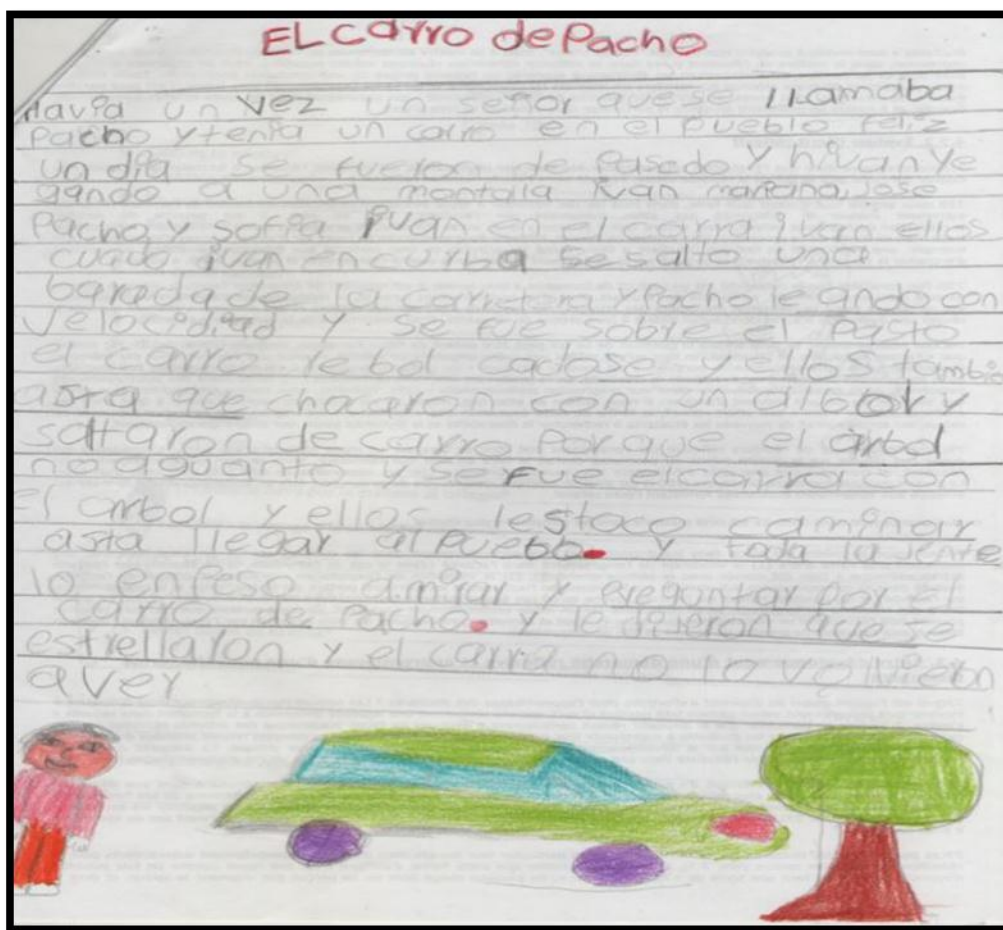 EL carro de Pacho
Havia un vez un señor que se llamaba
Pacho y tenia un carro en el pueblo feliz
un dia se fueron de Pasedo y hivan ye
gando a una montaña ivan mariana, Jose
Pacho, y sofia ivan en el carro ivan ellos
cuando ivan en curba se salto una
de la carretera y Pacho le ando con
velocidad y se fue sobre el Pasto
el carro le bol cadose y ellos tambie
asta que chocaron con un albol y
saltaron de carro Porque el arbol
no aguanto y se fue el carro con
El arbol y ellos les toco caminar
asta llegar al Pueblo. y toda la jente
lo enpeso a mirar y preguntar por El
carro de Pacho. y le dijeron que se
estrellaron y el carro no lo volvieron
aver